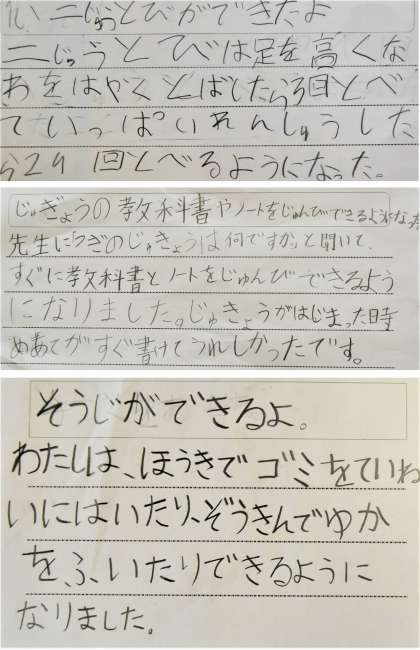 い、二じゅうとびができたよ
二じゅうとびは足を高くな
わをはやくとばしたら3回とべ
ていっぱいれんしゅうした
ら24回とべるようになった。
じゅぎょうの教科書やノートをじゅんびできるようになった
先生に「つぎのじゅぎょうは何ですか」と聞いて、
すぐに教科書とノートをじゅんびできるよう
になりました。じゅぎょうがはじまった時
めあてがすぐ書けてうれしかったです。
そうじができるよ。
わたしは、ほうきでゴミをていね
いにはいたり、ぞうきんでゆか
をふいたりできるように
なりました。